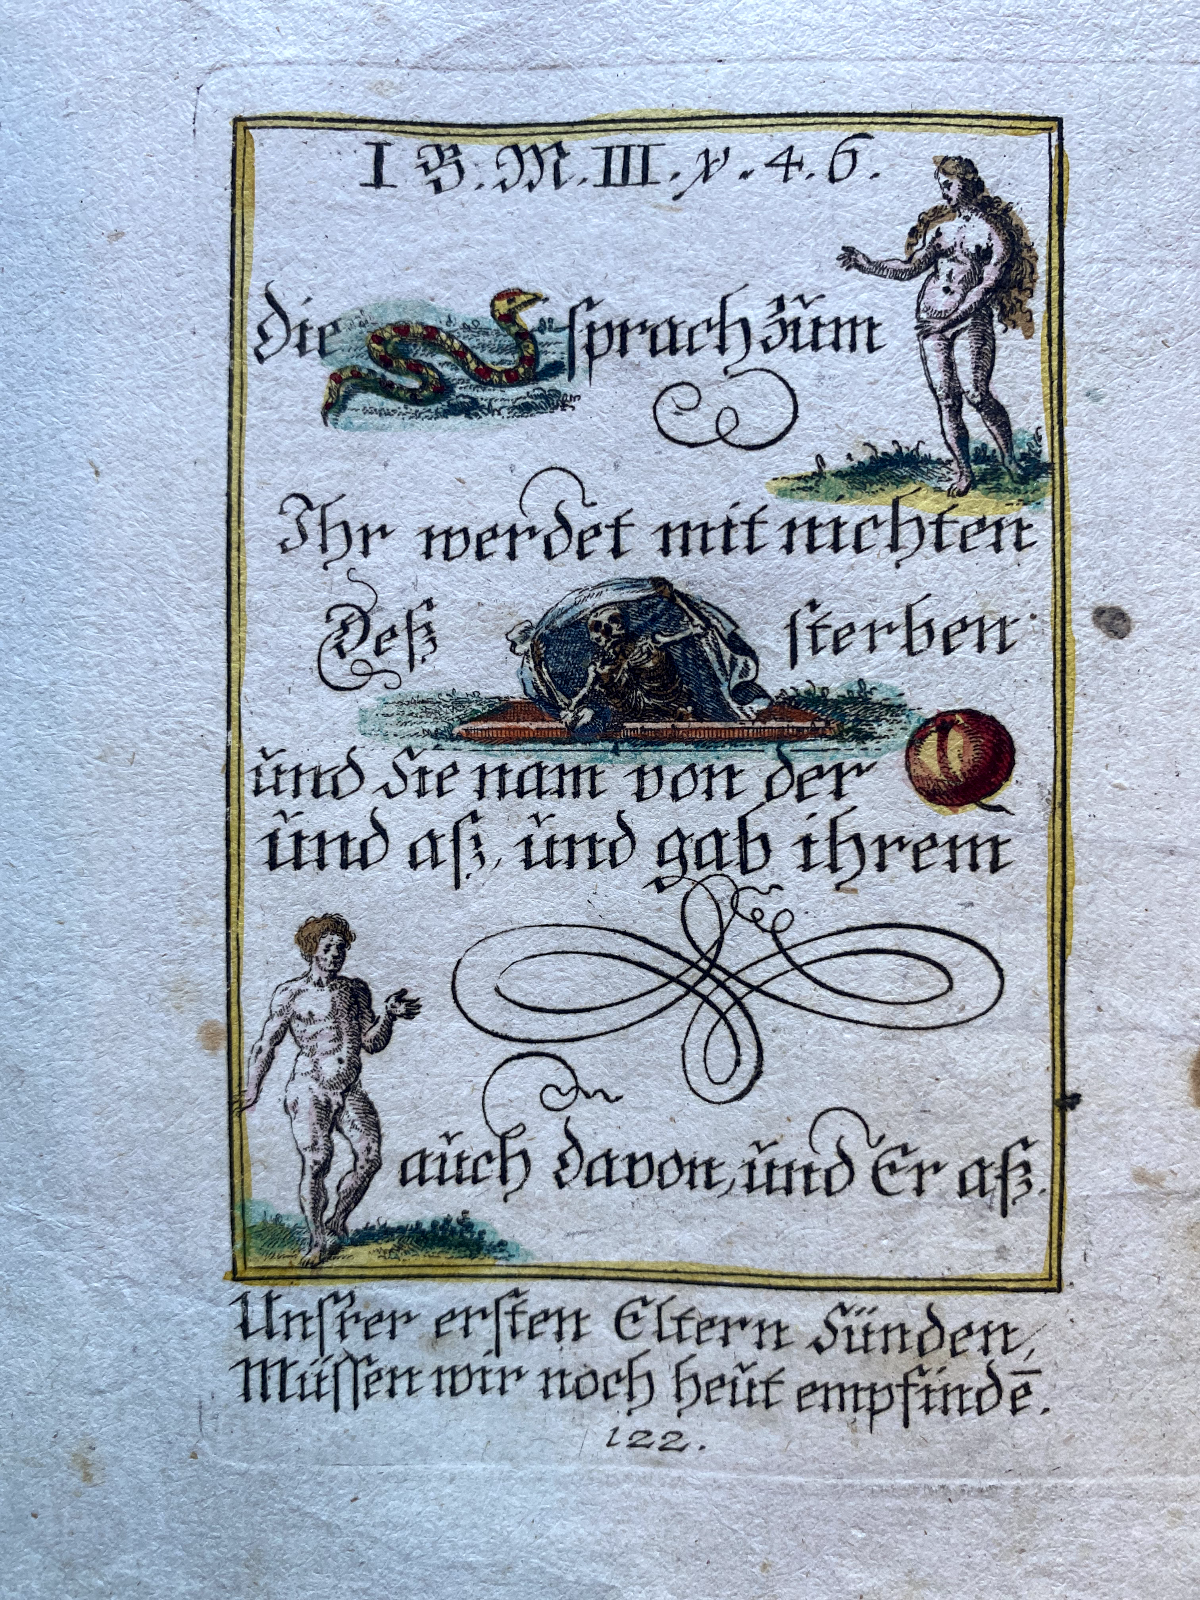 I B. M. III. v. 4. 6.
Die sprach zŭm
Ihr werdet mit nichten
Deß sterben
ŭnd Sie nam von der
ŭnd aß, ŭnd gab ihrem
aŭch davon, ŭnd Er aß.
Unsrer ersten Eltern Sünden,
Müssen wir noch heŭt empfindē.
122.